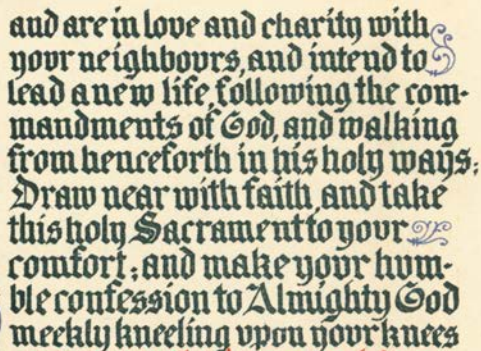 and are in love and charity with
yovr neighbovrs, and intend to
lead a new life, following the com-
mandments of God, and walking
from henceforth in his holy ways;
Draw near with faith, and take
this holy Sacrament to yovr
comfort; and make yovr hvm-
ble confession to Almighty God
meekly kneeling vpon yovr knees